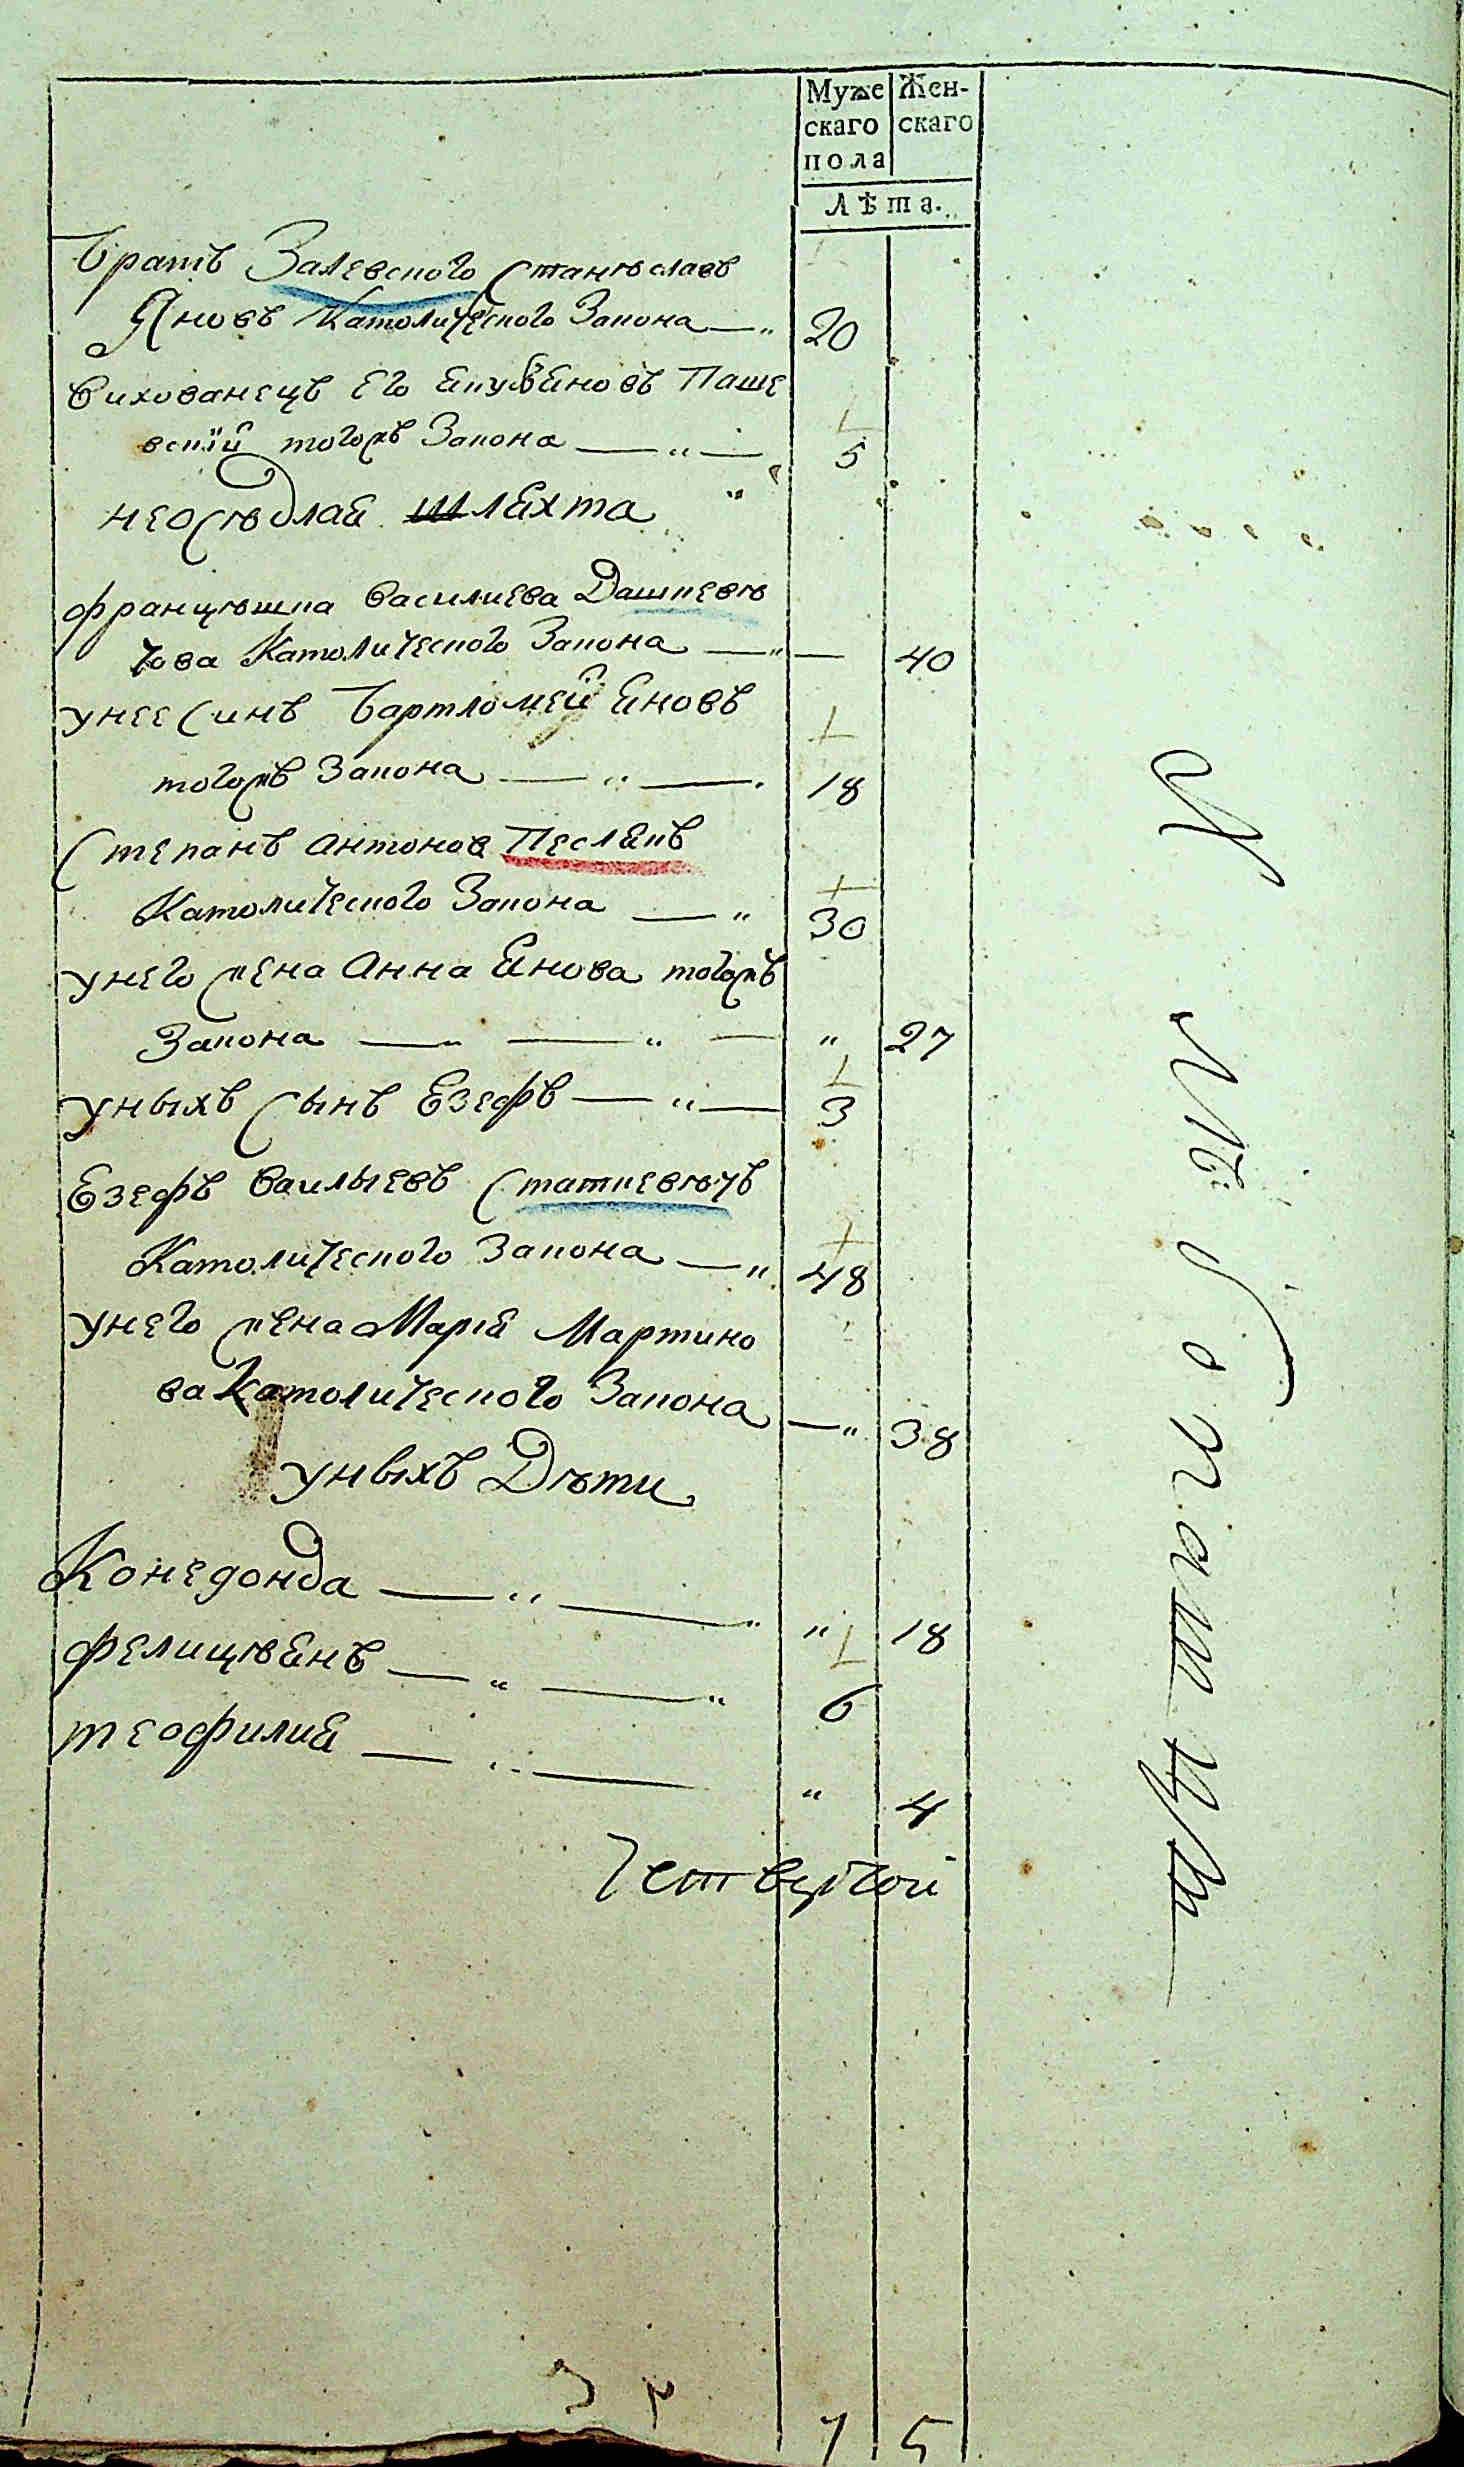 Муже
скаго
пола
Жен-
скаго
Лѣта.
братъ Залевского Станѣславъ
Яновъ Католического Закона — „ 20
Вихованецъ Его Якубяновъ Паше
вскій тогожъ Закона — „ — 5
неосѣдлая шляхта „
францѣшка Василиева Дашкевѣ
чова Католического Закона — „ — 40
унее Синъ бартломей Яновъ
тогожъ Закона — „ — 18
Степанъ антонов Песлякъ
Католического Закона — „ 30
унего жена Анна Янова тогожъ
Закона — „ — „ — „ 27
уныхъ Сынъ Езефъ — „ — 3
Езефъ Васильевъ Статкевѣчъ
Католического Закона — „ 48
унего жена Марія Мартино
ва Католического Закона — „ 38
уныхъ Дѣти
Конегонда — „ — „ „ 18
фелицѣянъ — „ — „ 6
теофилия — „ — „ 4
Четвертой
7 5